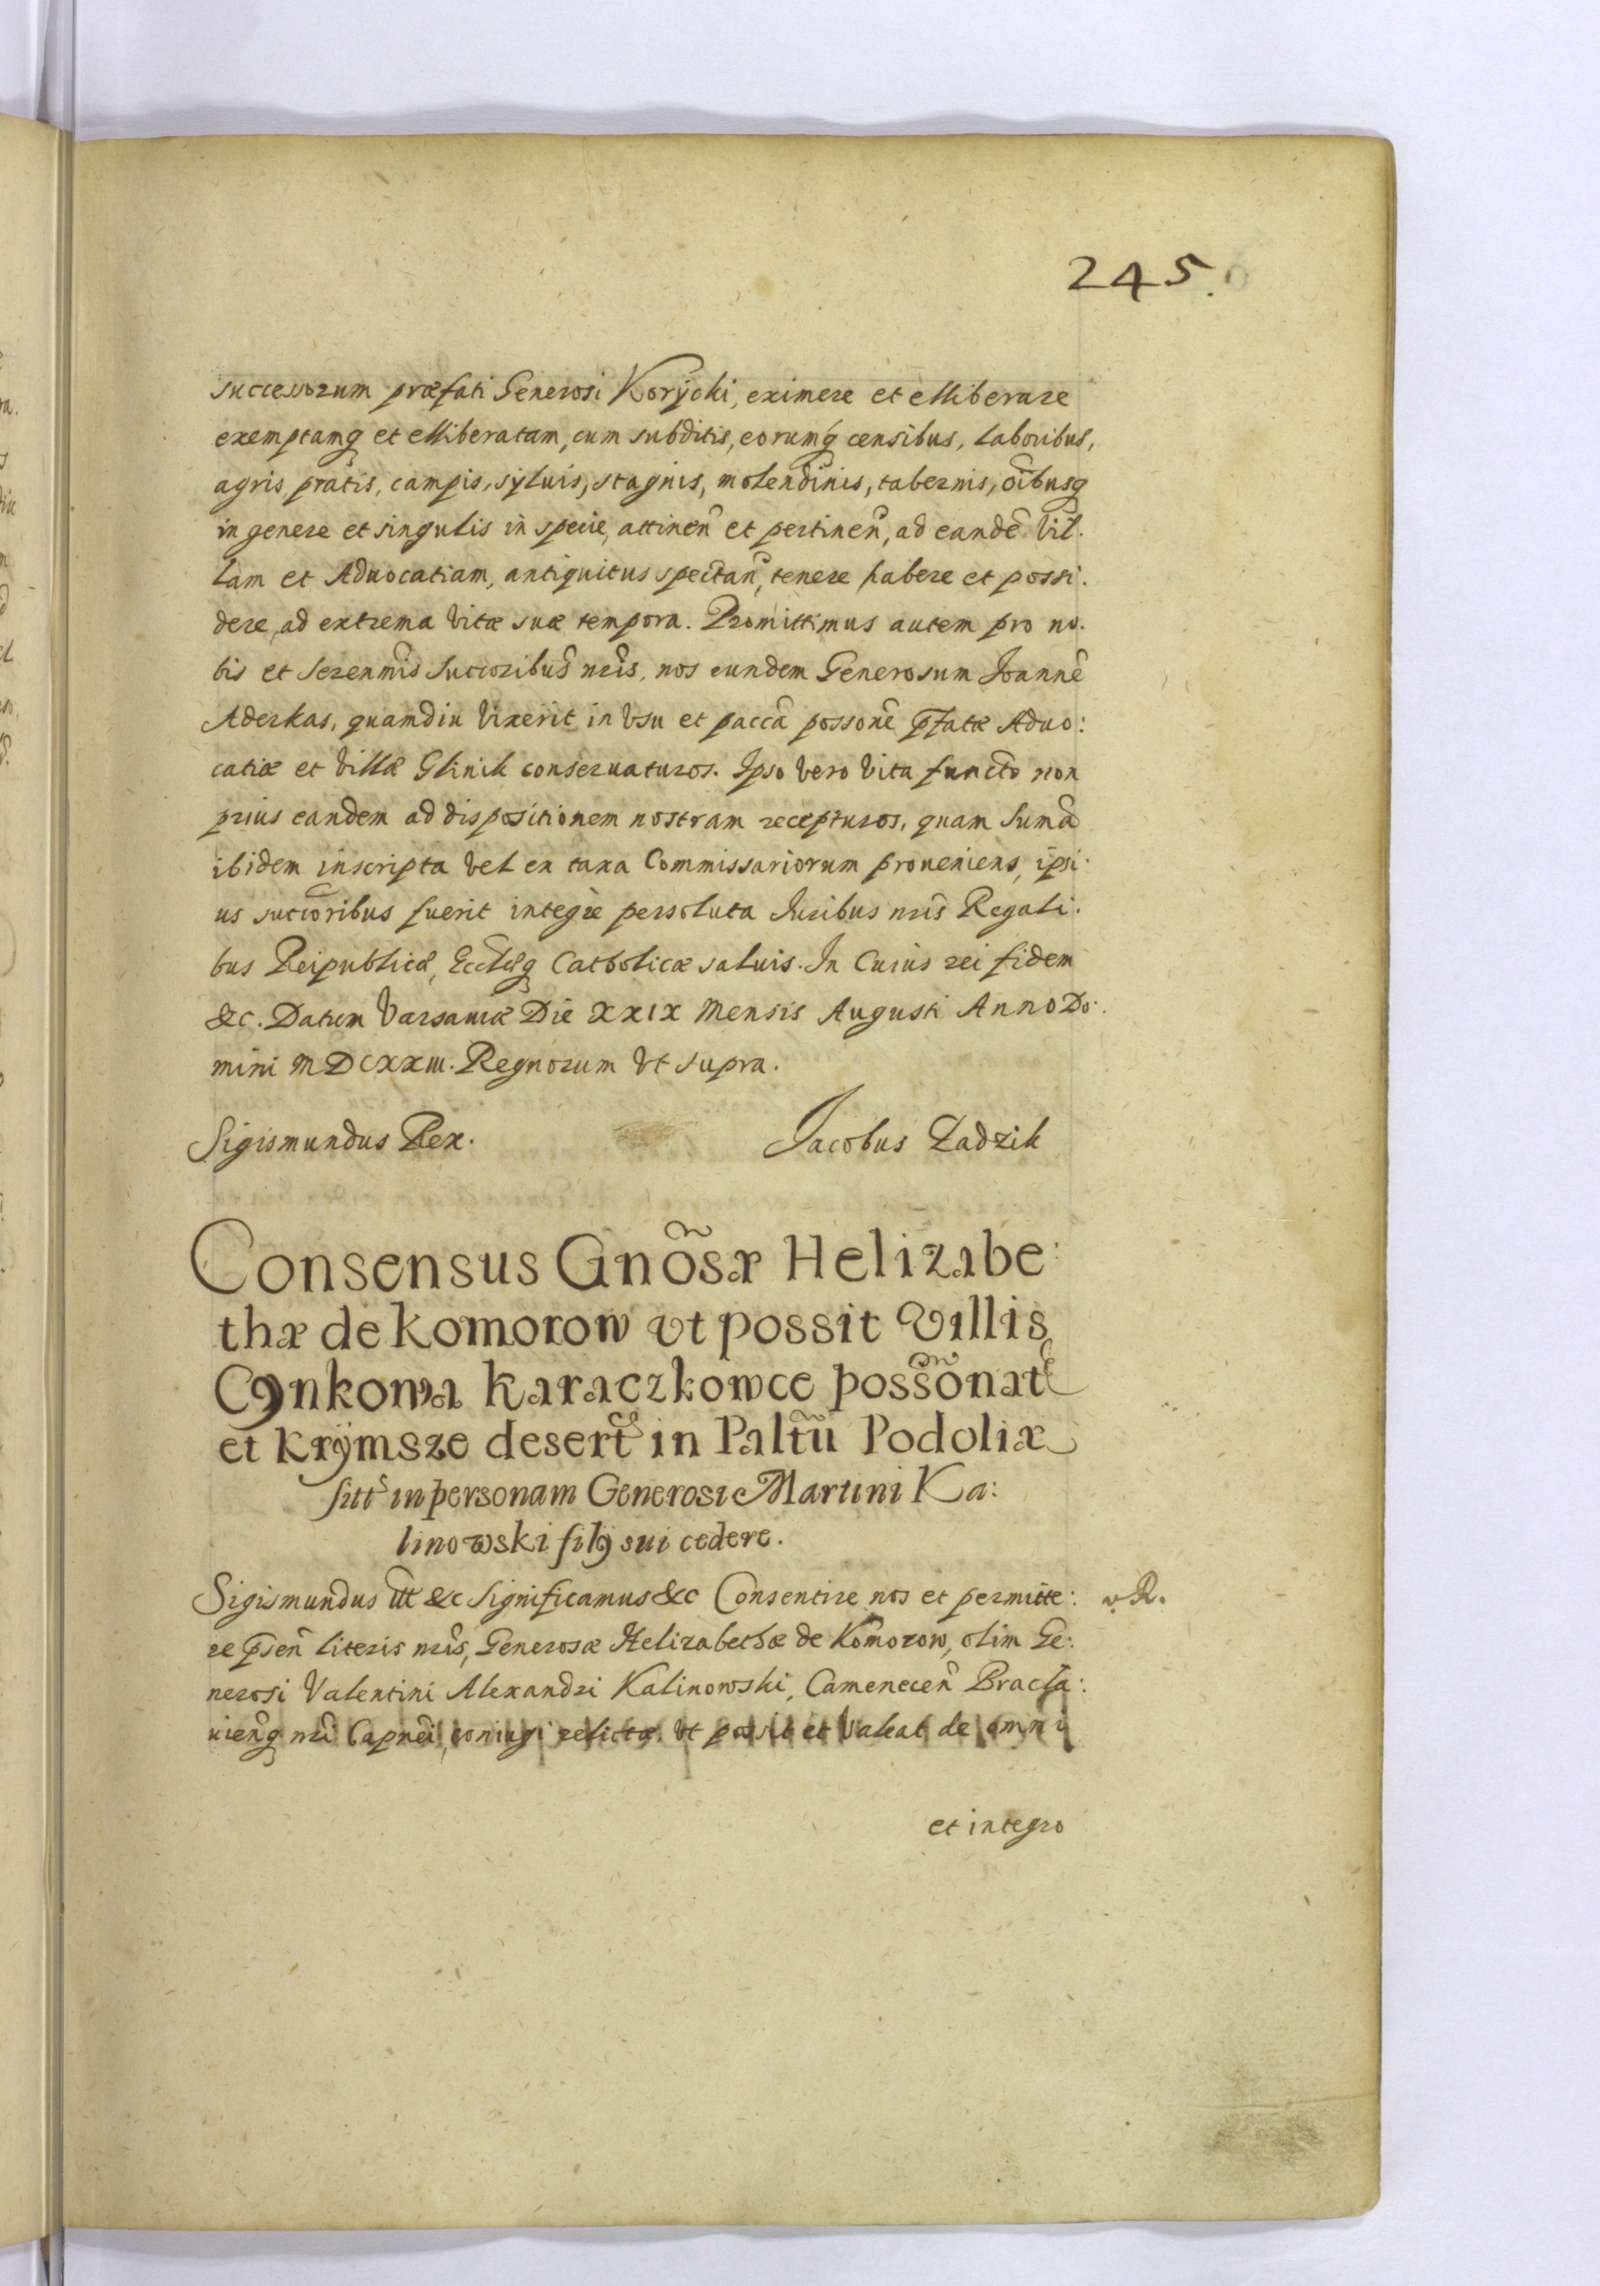 245.
successorum præfati Generosi Korÿcki, eximere et elliberare
exemptamq et elliberatam, cum subditis, eorumq censibus, laboribus,
agris pratis, campis, syluis, stagnis, molendinis, tabernis, oĩbusq
in genere et singulis in specie, attineñ et pertineñ, ad eandẽ Vil.
lam et Aduocatiam, antiquitus spectañ, tenere habere et possi.
dere, ad extrema Vitæ suæ tempora. Promittimus autem pro no.
bis et Serenm̃is Succoribus nr̃is, nos eundem Generosum Joannẽ
Aderkas, quamdiu Vixerit in Vsu et paccã possonẽ p̃fatæ Aduo:
catiæ et Villæ Glinik conseruaturos. Ipso vero Vita functo non
prius eandem ad dispositionem nostram recepturos, quam Sum̃a
ibidem inscripta vel ex taxa Commissariorum proueniens, ipsi.
us succoribus fuerit integre persoluta Iuribus nr̃is Regali.
bus Reipublicæ, Eccl̃æq Catholicæ saluis. In Cuius rei fidem
&c. Datum Varsauiæ Die XXIX Mensis Augusti Anno Do.
mini MDCXXIII. Regnorum Vt supra.
Sigismundus Rex. Jacobus Zadzik
Consensus Gnõsæ Helizabe:
thæ de Komorow vt possit Villis
Cynkowa Karaczkowce possõnat
et Krÿmsze desert in Paltũ Podoliæ
sitt in personam Generosi Martini Ka:
linowski filij sui cedere.
Sigismundus iii &c Significamus &c Consentire nos et permitte:
re p̃señ literis nr̃is, Generosæ Helizabethæ de Komorow, olim Ge:
nerosi Valentini Alexandri Kalinowski, Cameneceñ Bracla:
vieñq nr̃i Capnei, coniugi relictæ, vt possit et Valeat de omni
et integro